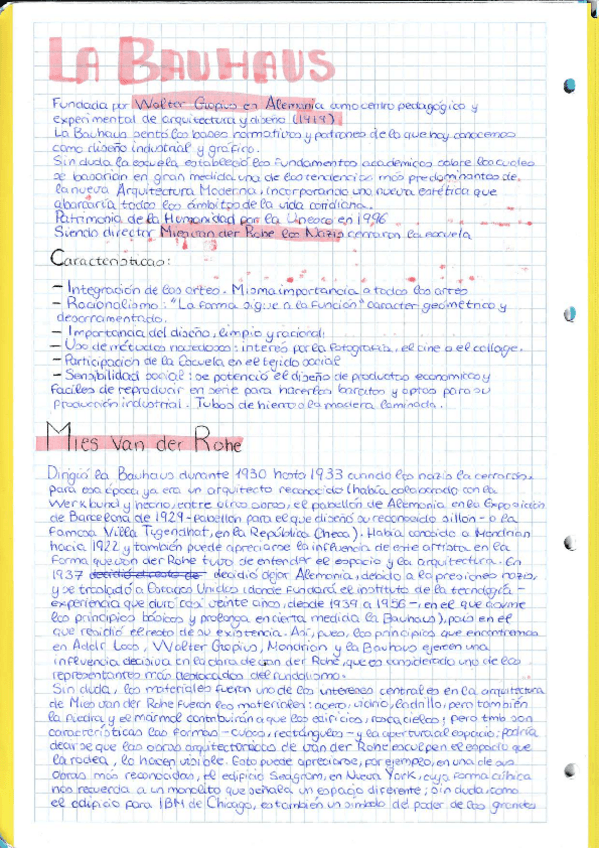 LA BAUHAUS
Fundada por Walter Gropius en Alemania como centro pedagógico y
experimental de arquitectura y diseño (1919)
La Bauhaus sentó las bases normativas y patrones de lo que hoy conocemos
como diseño industrial y gráfico.
Sin duda la escuela estableció los fundamentos académicos sobre los cuales
se basarían en gran medida una de las tendencias más predominantes de
la nueva Arquitectura Moderna, incorporando una nueva estética que
abarcaría todos los ámbitos de la vida cotidiana.
Patrimonio de la Humanidad por la Unesco en 1996
Siendo director Mies van der Rohe los Nazis cerraron la escuela
Características:
- Integración de las artes. Misma importancia a todas las artes
- Racionalismo: "La forma sigue a la función" caracter geométrico y
desornamentado.
- Importancia del diseño, limpio y racional.
- Uso de métodos novedosos: interés por la fotografía, el cine o el collage.
- Participación de la Escuela en el tejido social
- Sensibilidad social: se potenció el diseño de productos económicos y
faciles de reproducir en serie para hacerlos baratos y aptos para su
producción industrial. Tubos de hierro o la madera laminada.
Mies van der Rohe
Dirigió la Bauhaus durante 1930 hasta 1933 cuando los nazis la cerraron
para esa época ya era un arquitecto reconocido (había colaborado con la
Werkbund y hecho, entre otras obras, el pabellón de Alemania en la Exposición
de Barcelona de 1929 - pabellón para el que diseñó su reconocido sillon - o la
famosa Villa Tugendhat, en la República Checa). Había conocido a Mondrian
hacia 1922 y también puede apreciarse la influencia de este artista en la
forma que van der Rohe tuvo de entender el espacio y la arquitectura. En
1937 decidió dejar Alemania, debido a la presiones nazis,
y se trasladó a Estados Unidos (donde fundará el instituto de la tecnología -
experiencia que duró casi veinte años, desde 1939 a 1956 -, en el que asume
los principios básicos y prolonga en cierta medida la Bauhaus), país en el
que residió el resto de su existencia. Así, pues, los principios que encontramos
en Adolf Loos, Walter Gropius, Mondrian y la Bauhaus ejercen una
influencia decisiva en la obra de van der Rohe, que es considerado uno de los
representantes más destacados del
Sin duda, los materiales fueron uno de los intereses centrales en la arquitectura
de Mies van der Rohe fueron los materiales: acero, vidrio, ladrillo, pero también
la piedra y el mármol contribuirán a que los edificios, rascacielos; pero tmb son
características las formas - cubos, rectángulos - y la apertura al espacio: podría
decirse que las obras arquitectónicas de van der Rohe esculpen el espacio que
la rodea, lo hacen visible. Esto puede apreciarse, por ejemplo, en una de sus
obras más reconocidas, el edificio Seagram, en Nueva York, cuya forma
nos recuerda a un monolito que señala un espacio diferente; sin duda, como
el edificio para IBM de Chicago, es también un símbolo del poder de las grandes